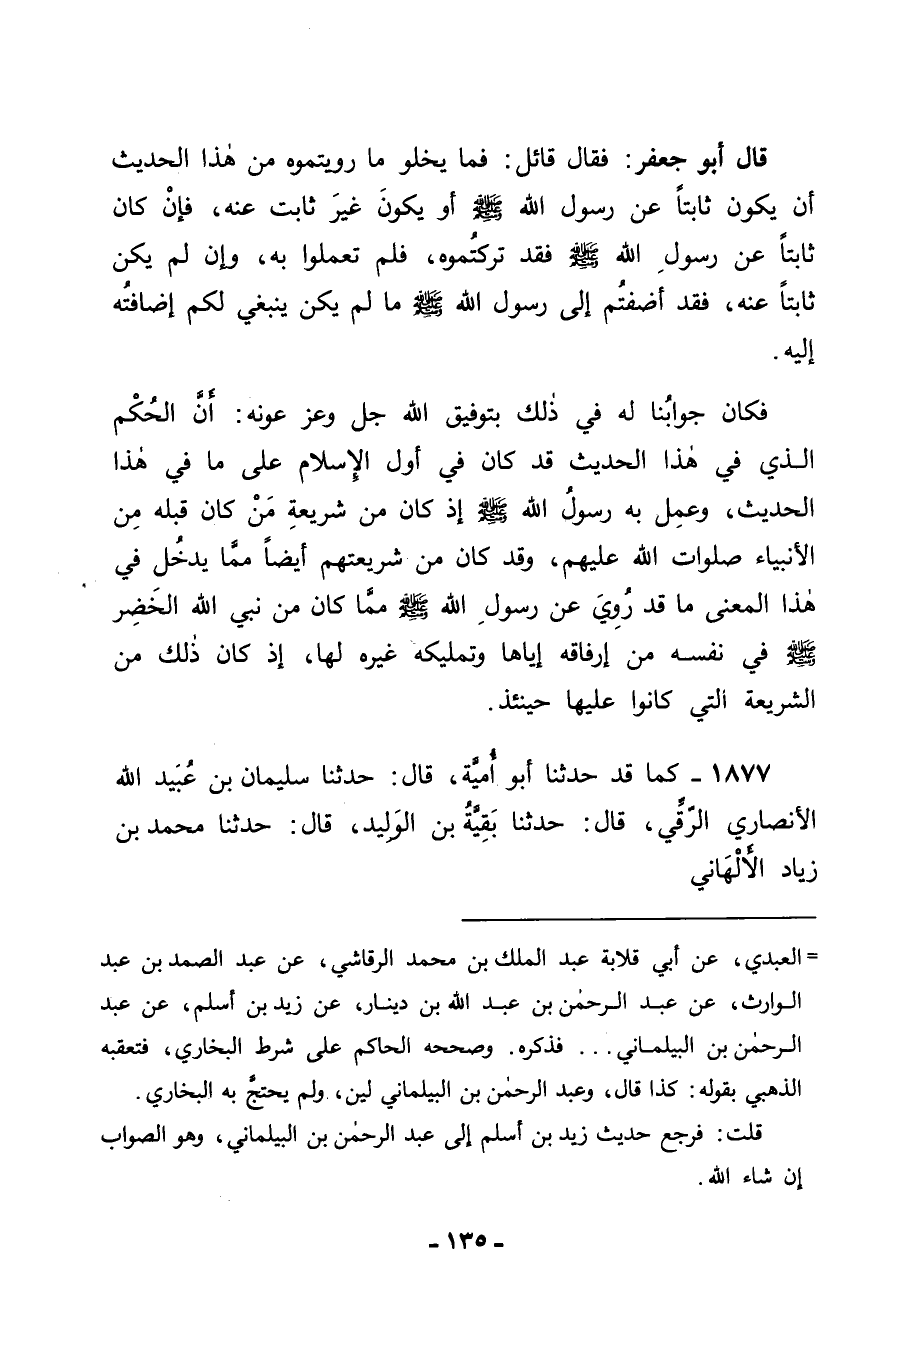 قال أبو جعفر: فقال قائل: فما يخلو ما رويتموه من هٰذا الحديث
أن يكون ثابتاً عن رسول الله ﷺ أو يكونَ غيرَ ثابت عنه، فإنْ كان
ثابتاً عن رسولِ الله ﷺ فقد تركتُموه، فلم تعملوا به، وإن لم يكن
ثابتاً عنه، فقد أضفتُم إلى رسول الله ﷺ ما لم يكن ينبغي لكم إضافتُه
إليه.
فكان جوابُنا له في ذٰلك بتوفيق الله جل وعز عونه: أَنَّ الحُكْم
الـذي في هٰذا الحديث قد كان في أول الإِسلام على ما في هٰذا
الحديث، وعمِل به رسولُ الله ﷺ إذ كان من شريعةِ مَنْ كان قبله مِن
الأنبياء صلوات الله عليهم، وقد كان من شريعتهم أيضاً ممَّا يدخُل في
هٰذا المعنى ما قد رُوِيَ عن رسولِ الله ﷺ ممَّا كان من نبي الله الخَضِر
ﷺ في نفسـه من إرفاقه إياها وتمليكه غيره لها، إذ كان ذٰلك من
الشريعة التي كانوا عليها حينئذ.
١٨٧٧ ـ كما قد حدثنا أبو أُميَّة، قال: حدثنا سليمان بن عُبَيد الله
الأنصاري الرَّقِّي، قال: حدثنا بَقِيَّةُ بن الوَلِيد، قال: حدثنا محمد بن
زياد الأَلْهَاني
= العبدي، عن أبي قلابة عبد الملك بن محمد الرقاشي، عن عبد الصمد بن عبد
الـوارث، عن عبـد الـرحمٰن بن عبـد الله بن دينـار، عن زيد بن أسلم، عن عبد
الـرحمٰن بن البيلمـاني... فذكره. وصححه الحاكم على شرط البخاري، فتعقبه
الذهبي بقوله: كذا قال، وعبد الرحمٰن بن البيلماني لين، ولم يحتجَّ به البخاري.
قلت: فرجع حديث زيد بن أسلم إلى عبد الرحمٰن بن البيلماني، وهو الصواب
إن شاء الله.
ـ ١٣٥ ـ